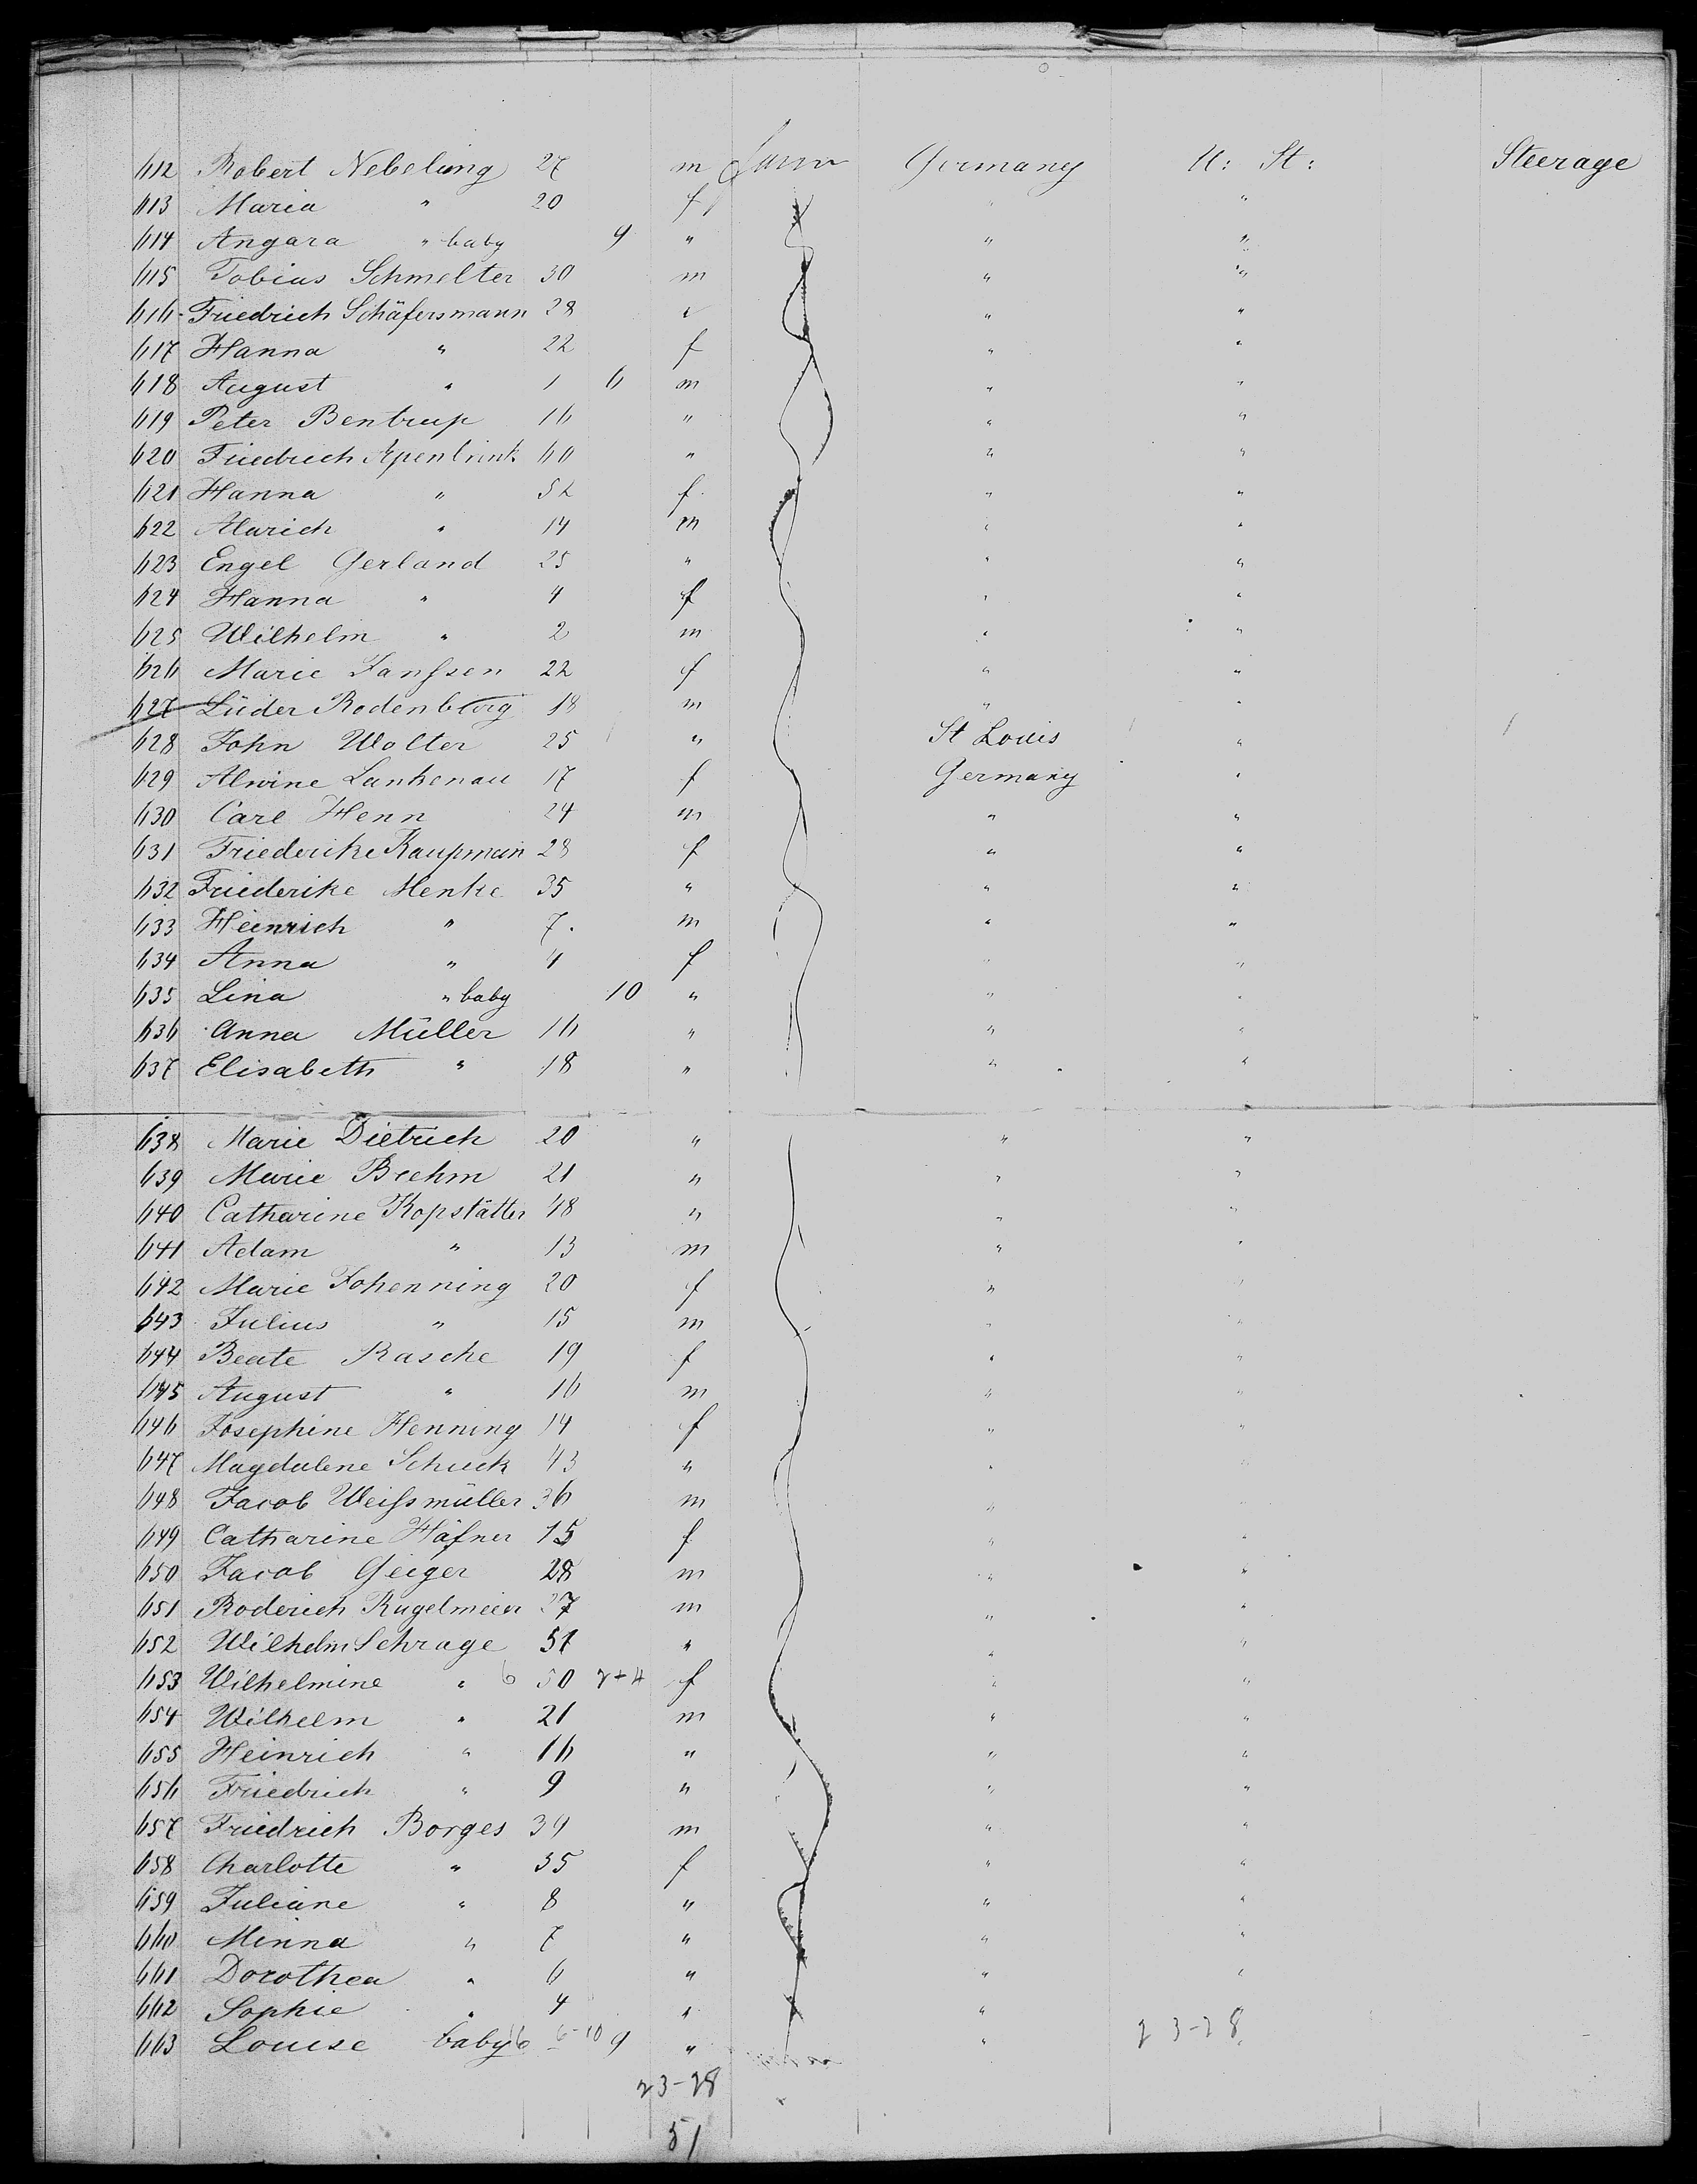 612 Robert Nebelung 27 m Farm Germany U: St: Steerage
613 Maria " 20 f " "
614 Angara " baby 9 " " "
615 Tobias Schmelter 30 m " "
616 Friedrich Schäfersmann 28 " " "
617 Hanna " 22 f " "
618 August " 1 6 m " "
619 Peter Bentrup 16 " " "
620 Friedrich Apenbrink 60 " " "
621 Hanna " 52 f " "
622 Alarich " 14 m " "
623 Engel Gerland 25 " " "
624 Hanna " 4 f " "
625 Wilhelm " 2 m " "
626 Marie Janſsen 22 f " "
627 Lüder Rodenburg 18 m " "
628 John Wolter 25 " St Louis "
629 Alwine Lankenau 17 f Germany "
630 Carl Henn 24 m " "
631 Friederike Kaupmein 28 f " "
632 Friederike Menke 35 " " "
633 Heinrich " 7. m " "
634 Anna " 4 f " "
635 Lina " baby 10 " " "
636 Anna Müller 16 " " "
637 Elisabeth " 18 " " "
638 Marie Dietrich 20 " " "
639 Marie Brehm 21 " " "
640 Catharine Kopstätter 48 " " "
641 Adam " 13 m " "
642 Marie Johenning 20 f " "
643 Julius " 15 m " "
644 Beate Rasche 19 f " "
645 August " 16 m " "
646 Josephine Henning 14 f " "
647 Magdalene Schuck 43 " " "
648 Jacob Weiſsmüller 36 m " "
649 Catharine Häfner 15 f " "
650 Jacob Geiger 28 m " "
651 Roderich Rugelmeier 27 m " "
652 Wilhelm Schrage 51 " " "
653 Wilhelmine " 6 50 7+4 f " "
654 Wilhelm " 21 m " "
655 Heinrich " 16 " " "
656 Friedrich " 9 " " "
657 Friedrich Borges 39 m " "
658 Charlotte " 35 f " "
659 Juliane " 8 " " "
660 Minna " 7 " " "
661 Dorothea " 6 " " "
662 Sophie " 4 " " "
663 Louise baby 6 6-10 9 " " 23-28
23-28
51